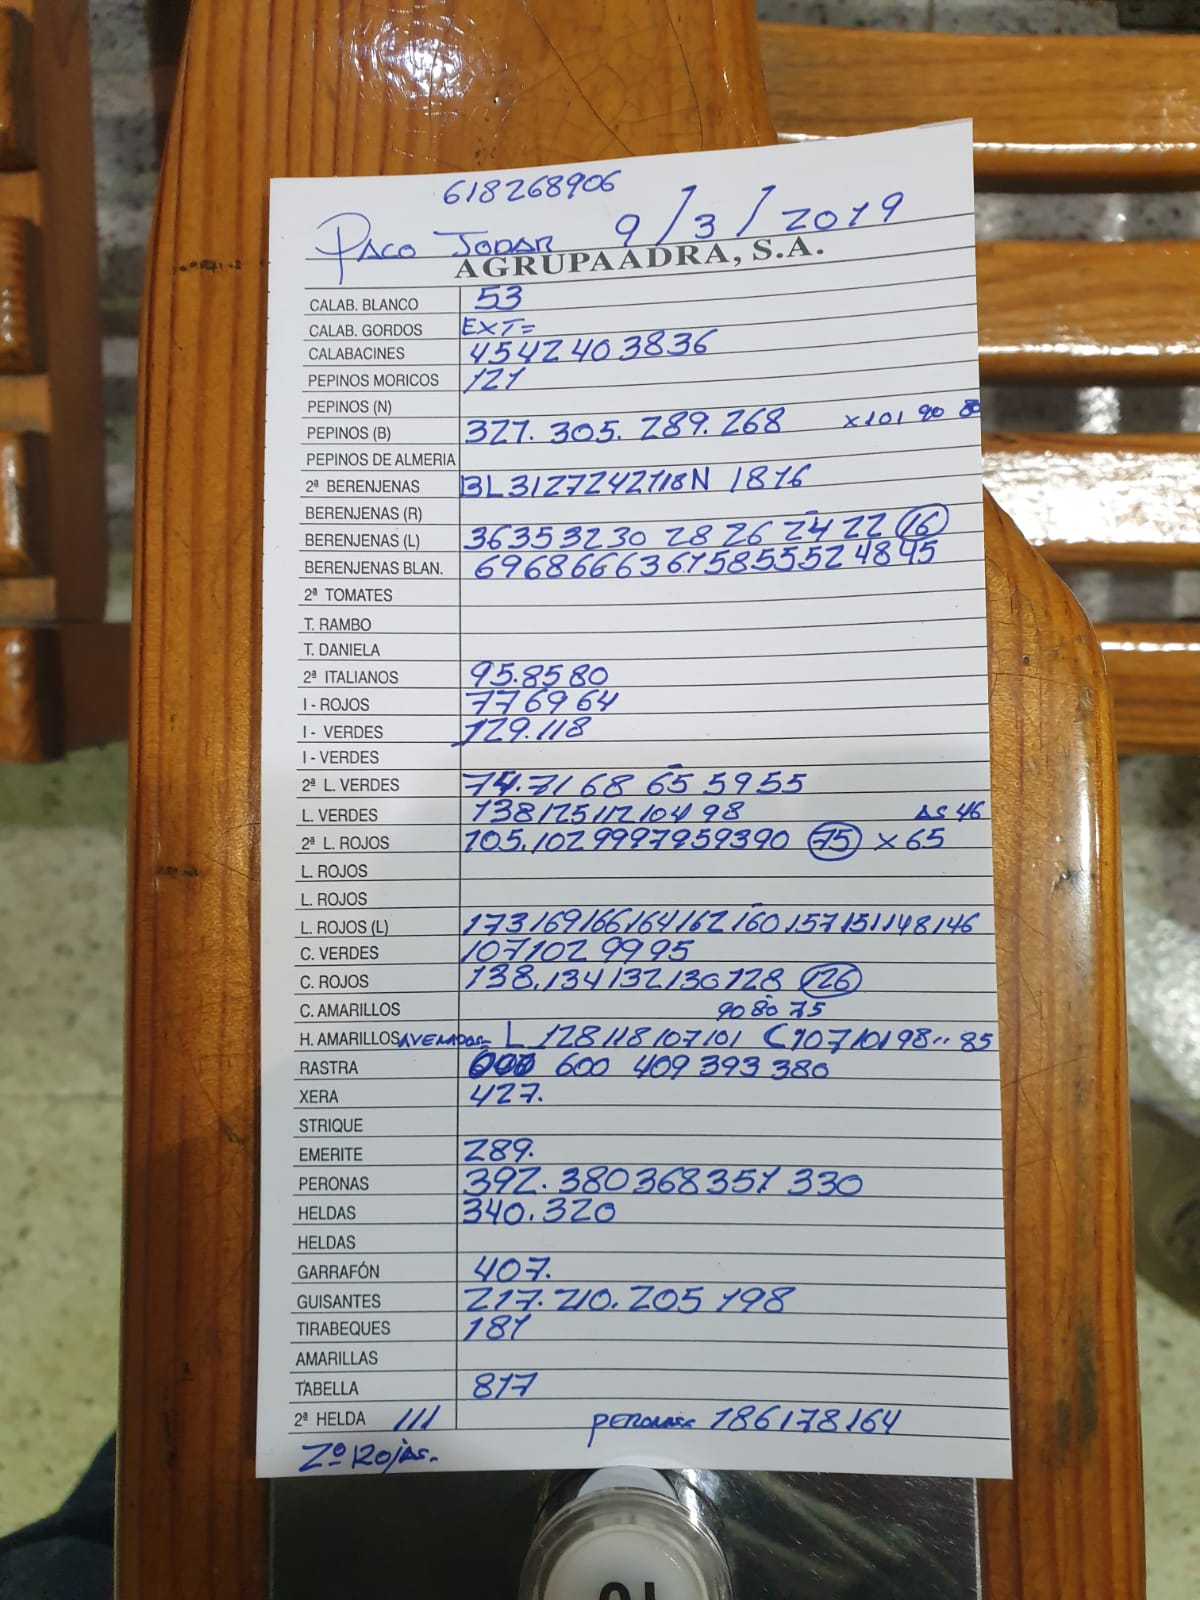 618268906
PACO JODAR 9/3/2019
AGRUPAADRA, S.A.
CALAB. BLANCO 53
CALAB. GORDOS EXT=
CALABACINES 4542403836
PEPINOS MORICOS 121
PEPINOS (N)
PEPINOS (B) 327. 305. 289. 268 x101 90 80
PEPINOS DE ALMERIA
2ª BERENJENAS BL3127242118N 1816
BERENJENAS (R)
BERENJENAS (L) 36353230 28 26 24 22 16
BERENJENAS BLAN. 69686663615855524845
2ª TOMATES
T. RAMBO
T. DANIELA
2ª ITALIANOS 95.8580
I - ROJOS 776964
I - VERDES 129.118
I - VERDES
2ª L. VERDES 74.7168 65 5955
L. VERDES 138125112104 98 AS 46
2ª L. ROJOS 105.102 9997959390 75 x 65
L. ROJOS
L. ROJOS
L. ROJOS (L) 173169166164162160157151148146
C. VERDES 1071029995
C. ROJOS 138.134132130128 126
C. AMARILLOS 90 80 75
H. AMARILLOS L 128118107101 C10710198.. 85
RASTRA 600 409 393 380
XERA 427.
STRIQUE
EMERITE 289.
PERONAS 392. 380368351 330
HELDAS 340.320
HELDAS
GARRAFÓN 407.
GUISANTES 217. 210. 205 198
TIRABEQUES 181
AMARILLAS
TABELLA 817
2ª HELDA 111 PERONAS 186178164
2º ROJAS.